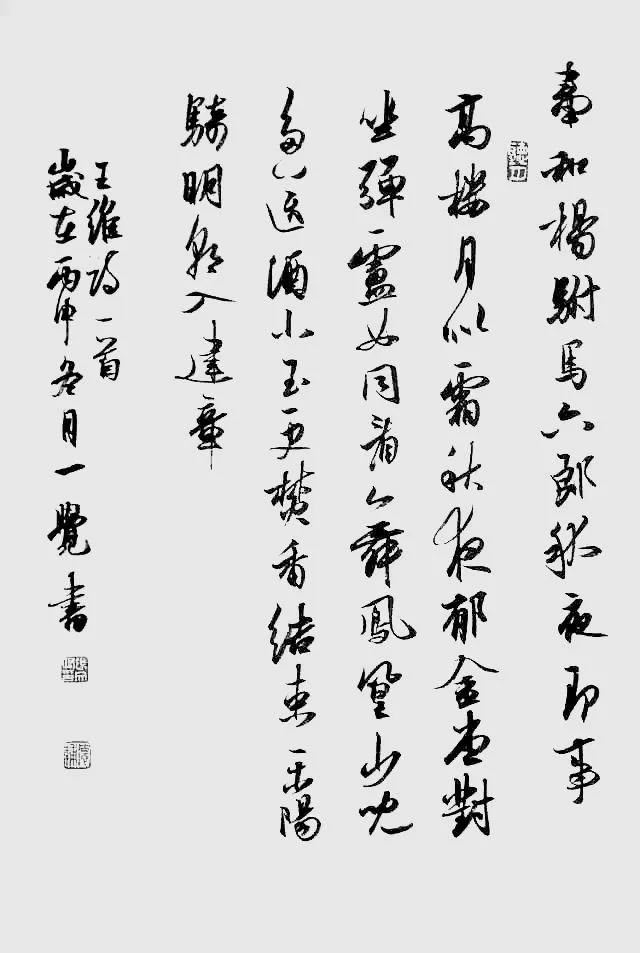 奉和楊駙馬六郎秋夜即事
高樓月似霜秋夜郁金堂對
坐彈盧女同看舞鳳凰少兒
多送酒小玉更焚香結束平陽
騎明朝入建章
王維詩一首
歲在丙申冬月一覺書